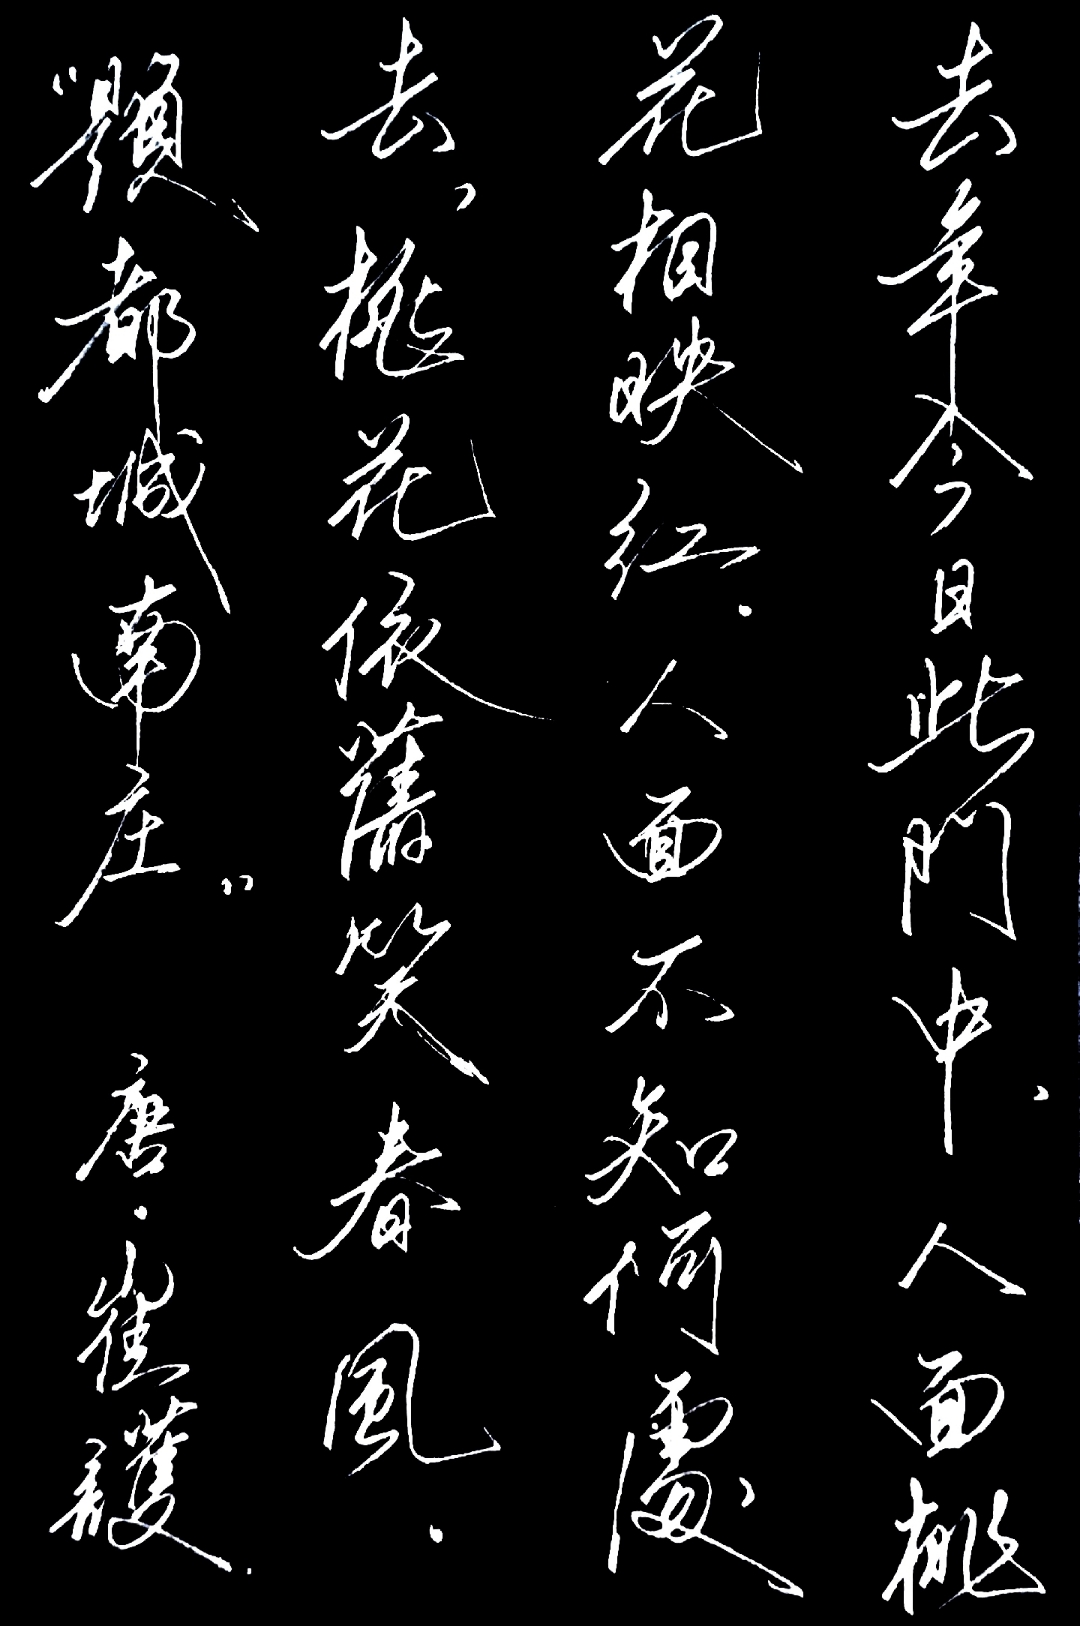 去年今日此門中、人面桃
花相映紅.人面不知何處
去,桃花依舊笑春風.
“題都城南庄” 唐.崔護.